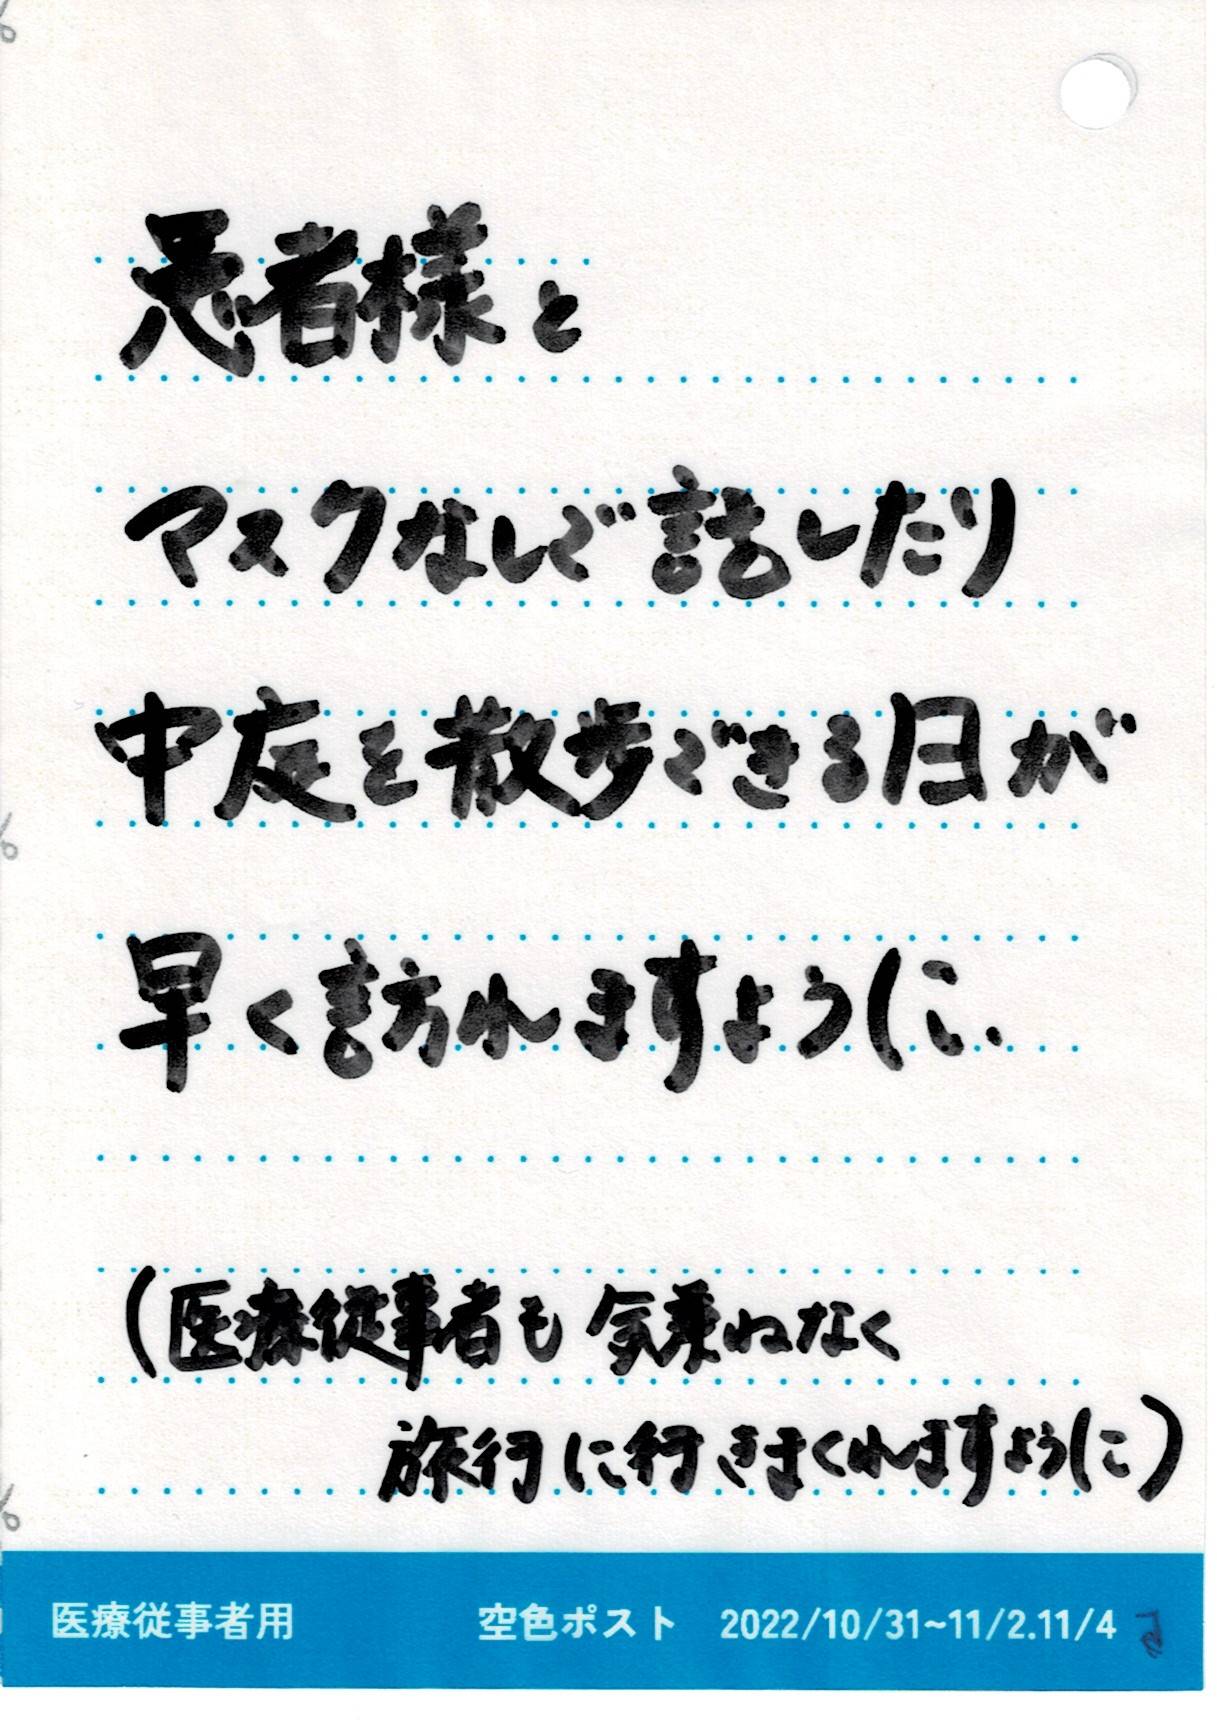 患者様と
マスクなしで話したり
中庭を散歩できる日が
早く訪れますように.
(医療従事者も気兼ねなく
旅行に行きまくれますように)
医療従事者用 空色ポスト 2022/10/31~11/2.11/4